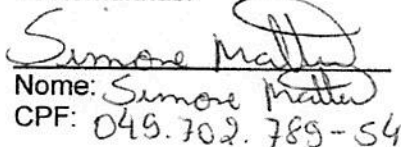 Simone Mattu
Nome: Simone Mattu
CPF: 049.702.789-54